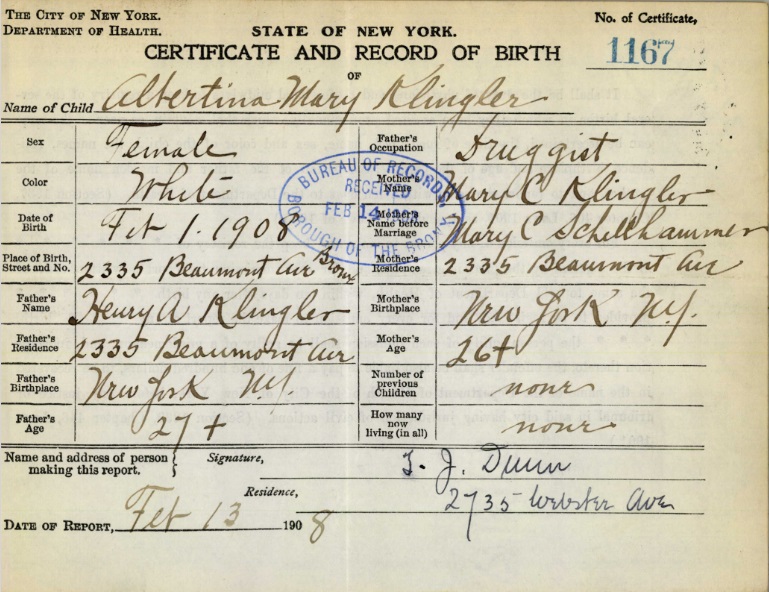 THE CITY OF NEW YORK.
DEPARTMENT OF HEALTH.
STATE OF NEW YORK.
No. of Certificate,
1167
CERTIFICATE AND RECORD OF BIRTH
OF
Name of Child Albertina Mary Klingler
Sex Female
Father's Occupation Druggist
Color White
Mother's Name Mary C Klingler
Date of Birth Feb 1. 1908
Mother's Name before Marriage Mary C Schellhammer
Place of Birth, Street and No. 2335 Beaumont Ave Bronx
Mother's Residence 2335 Beaumont Ave
Father's Name Henry A Klingler
Mother's Birthplace New York N.Y.
Father's Residence 2335 Beaumont Ave
Mother's Age 26+
Father's Birthplace New York N.Y.
Number of previous Children none
Father's Age 27+
How many now living (in all) none
BUREAU OF RECORDS
RECEIVED
FEB 14
BOROUGH OF THE BRONX
Name and address of person making this report. Signature, J. Dunn
Residence, 2735 Webster Ave
DATE OF REPORT, Feb 13 1908